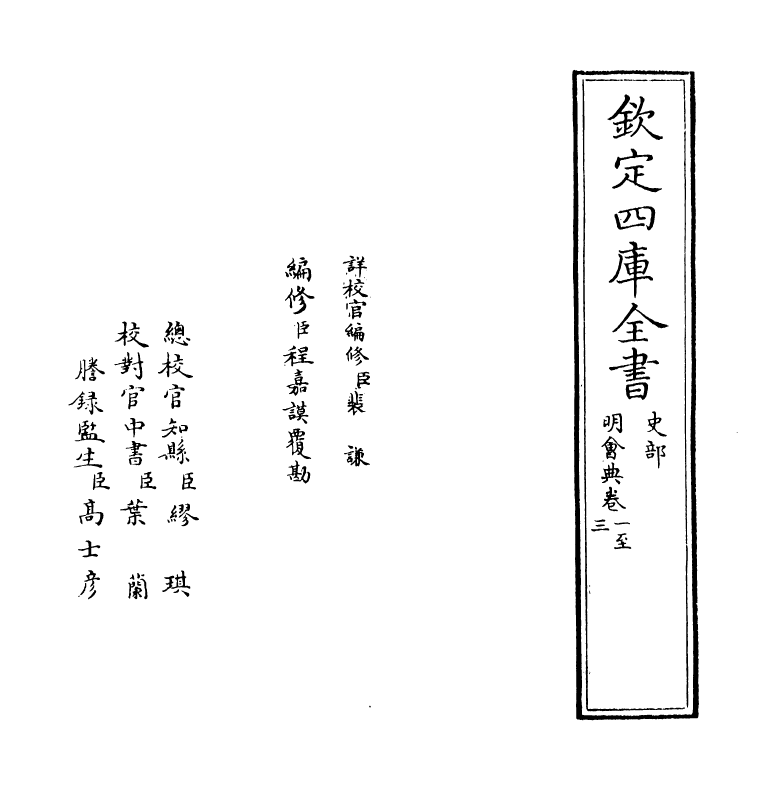 欽定四庫全書
史部
明會典卷一至三
詳校官編修臣裴謙
編修臣程嘉謨覆勘
總校官知縣臣繆琪
校對官中書臣葉蘭
謄錄監生臣高士彦